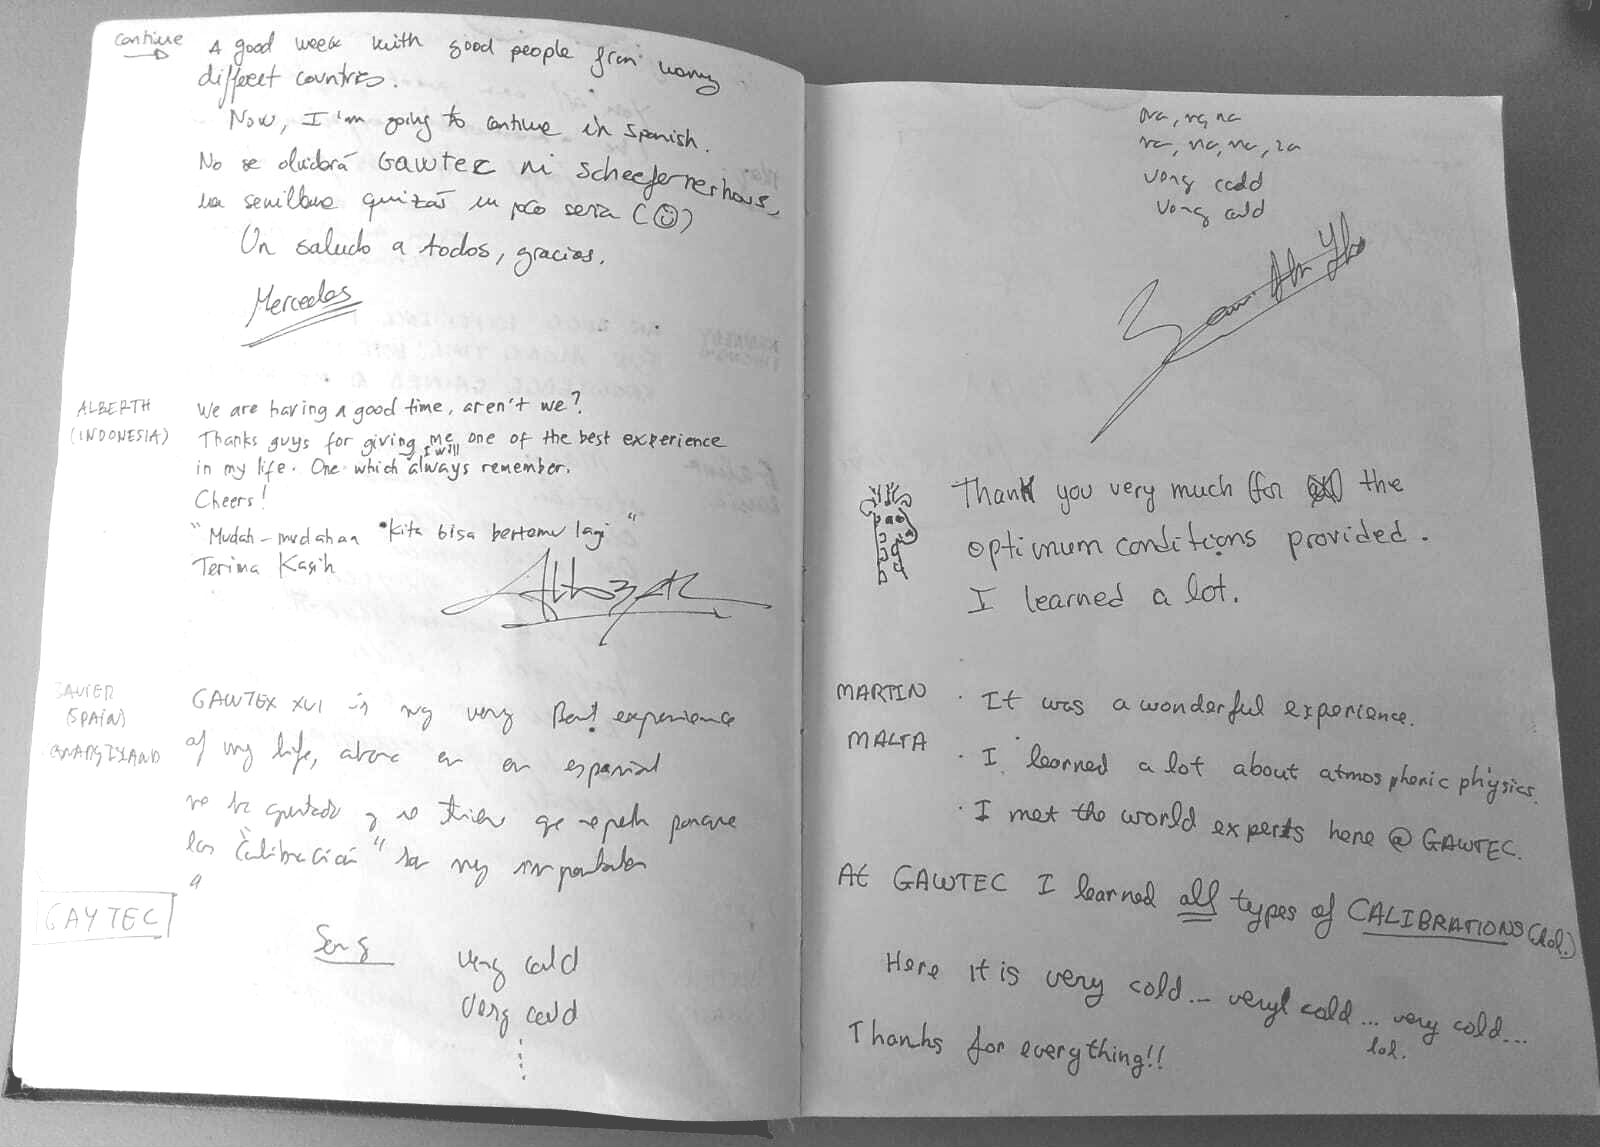 continue
A good week with good people from many
different countries.
Now, I'm going to continue in Spanish.
No se olvidará Gawtec ni Scheefernerhaus,
una semillna quizás un poco seria (☺)
Un saludo a todos, gracias.
Mercedes
ALBERTH
(INDONESIA)
We are having a good time, aren't we?
Thanks guys for giving me one of the best experience
in my life. One which I will always remember.
Cheers!
"Mudah-mudahan kita bisa bertemu lagi"
Terima Kasih
JAVIER
(SPAIN)
GAWTEX XVI is my very Best experience
of my life, ahora en en español
me ha gustado y se tiene que repetir porque
las "Calibración" son muy importantes
GAYTEC
Song
very cold
very cold
na, na, na
na, na, na, na
very cold
very cold
Thank you very much for the
optimum conditions provided.
I learned a lot.
MARTIN
MALTA
· It was a wonderful experience.
· I learned a lot about atmospheric physics.
· I met the world experts here @ GAWTEC.
At GAWTEC I learned all types of CALIBRATIONS (lol.)
Here it is very cold... very cold... very cold...
lol.
Thanks for everything!!